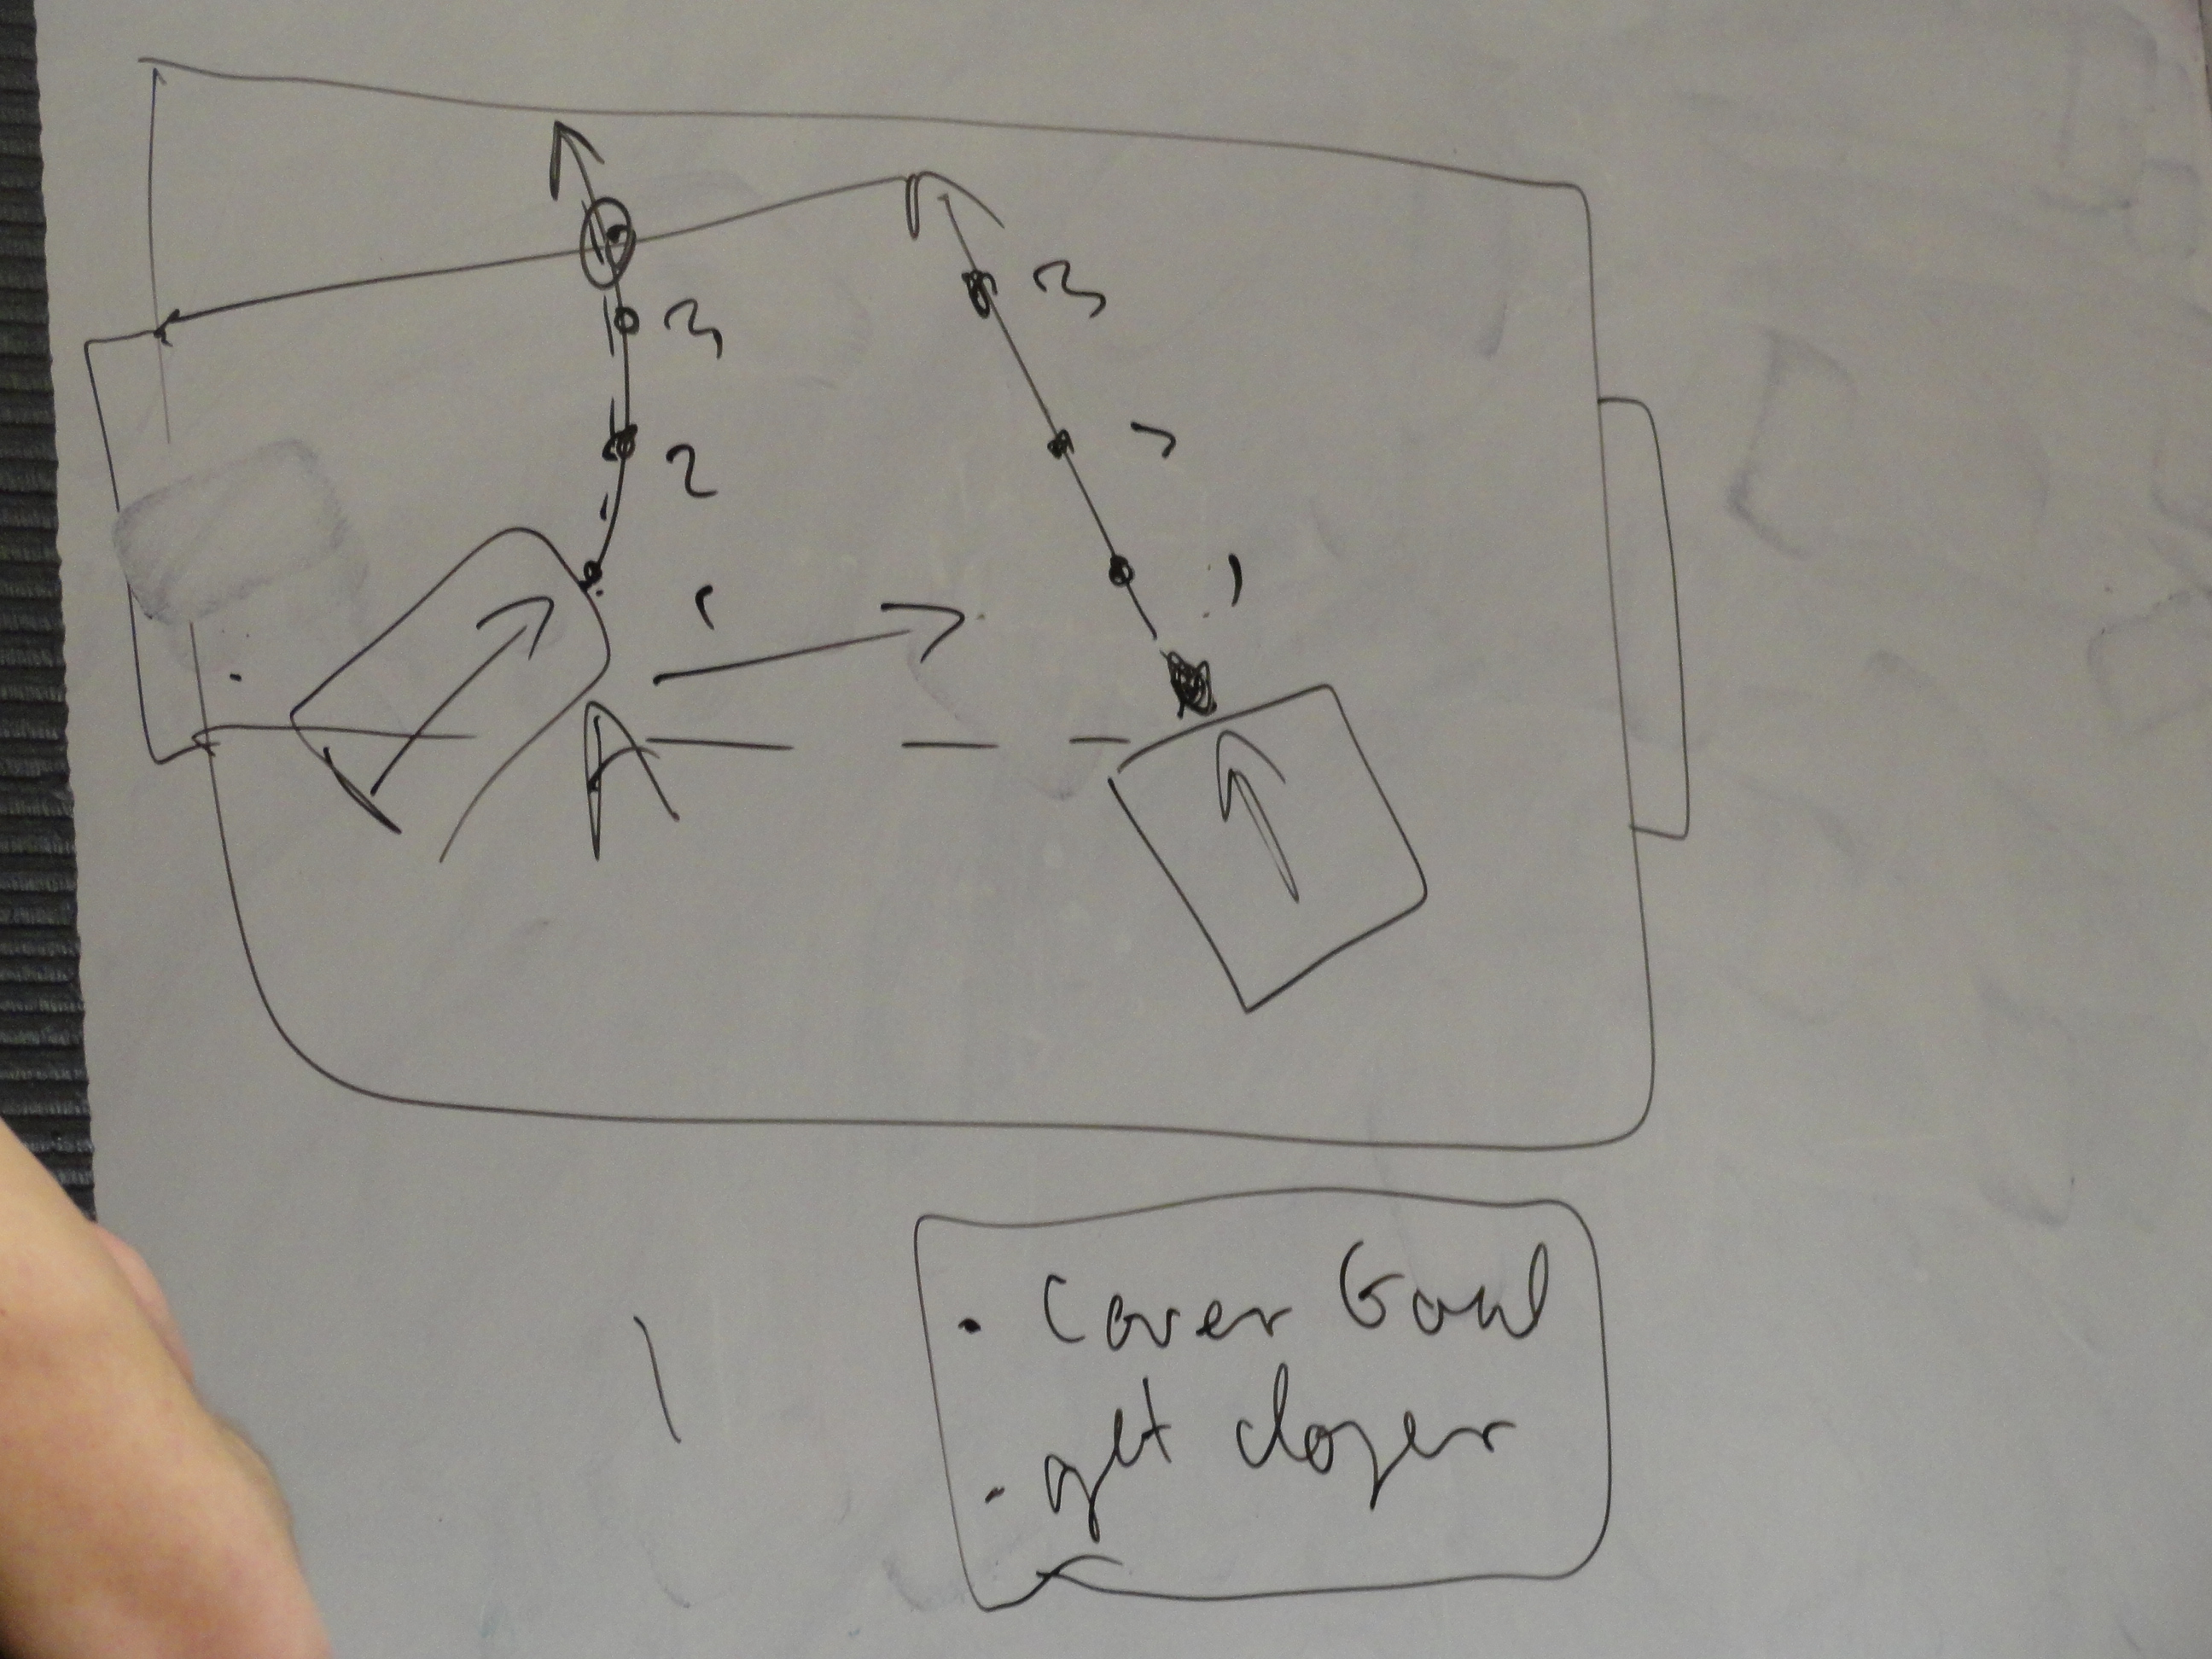 3 3
2 2
1 1
A
• Cover Goal
• get closer